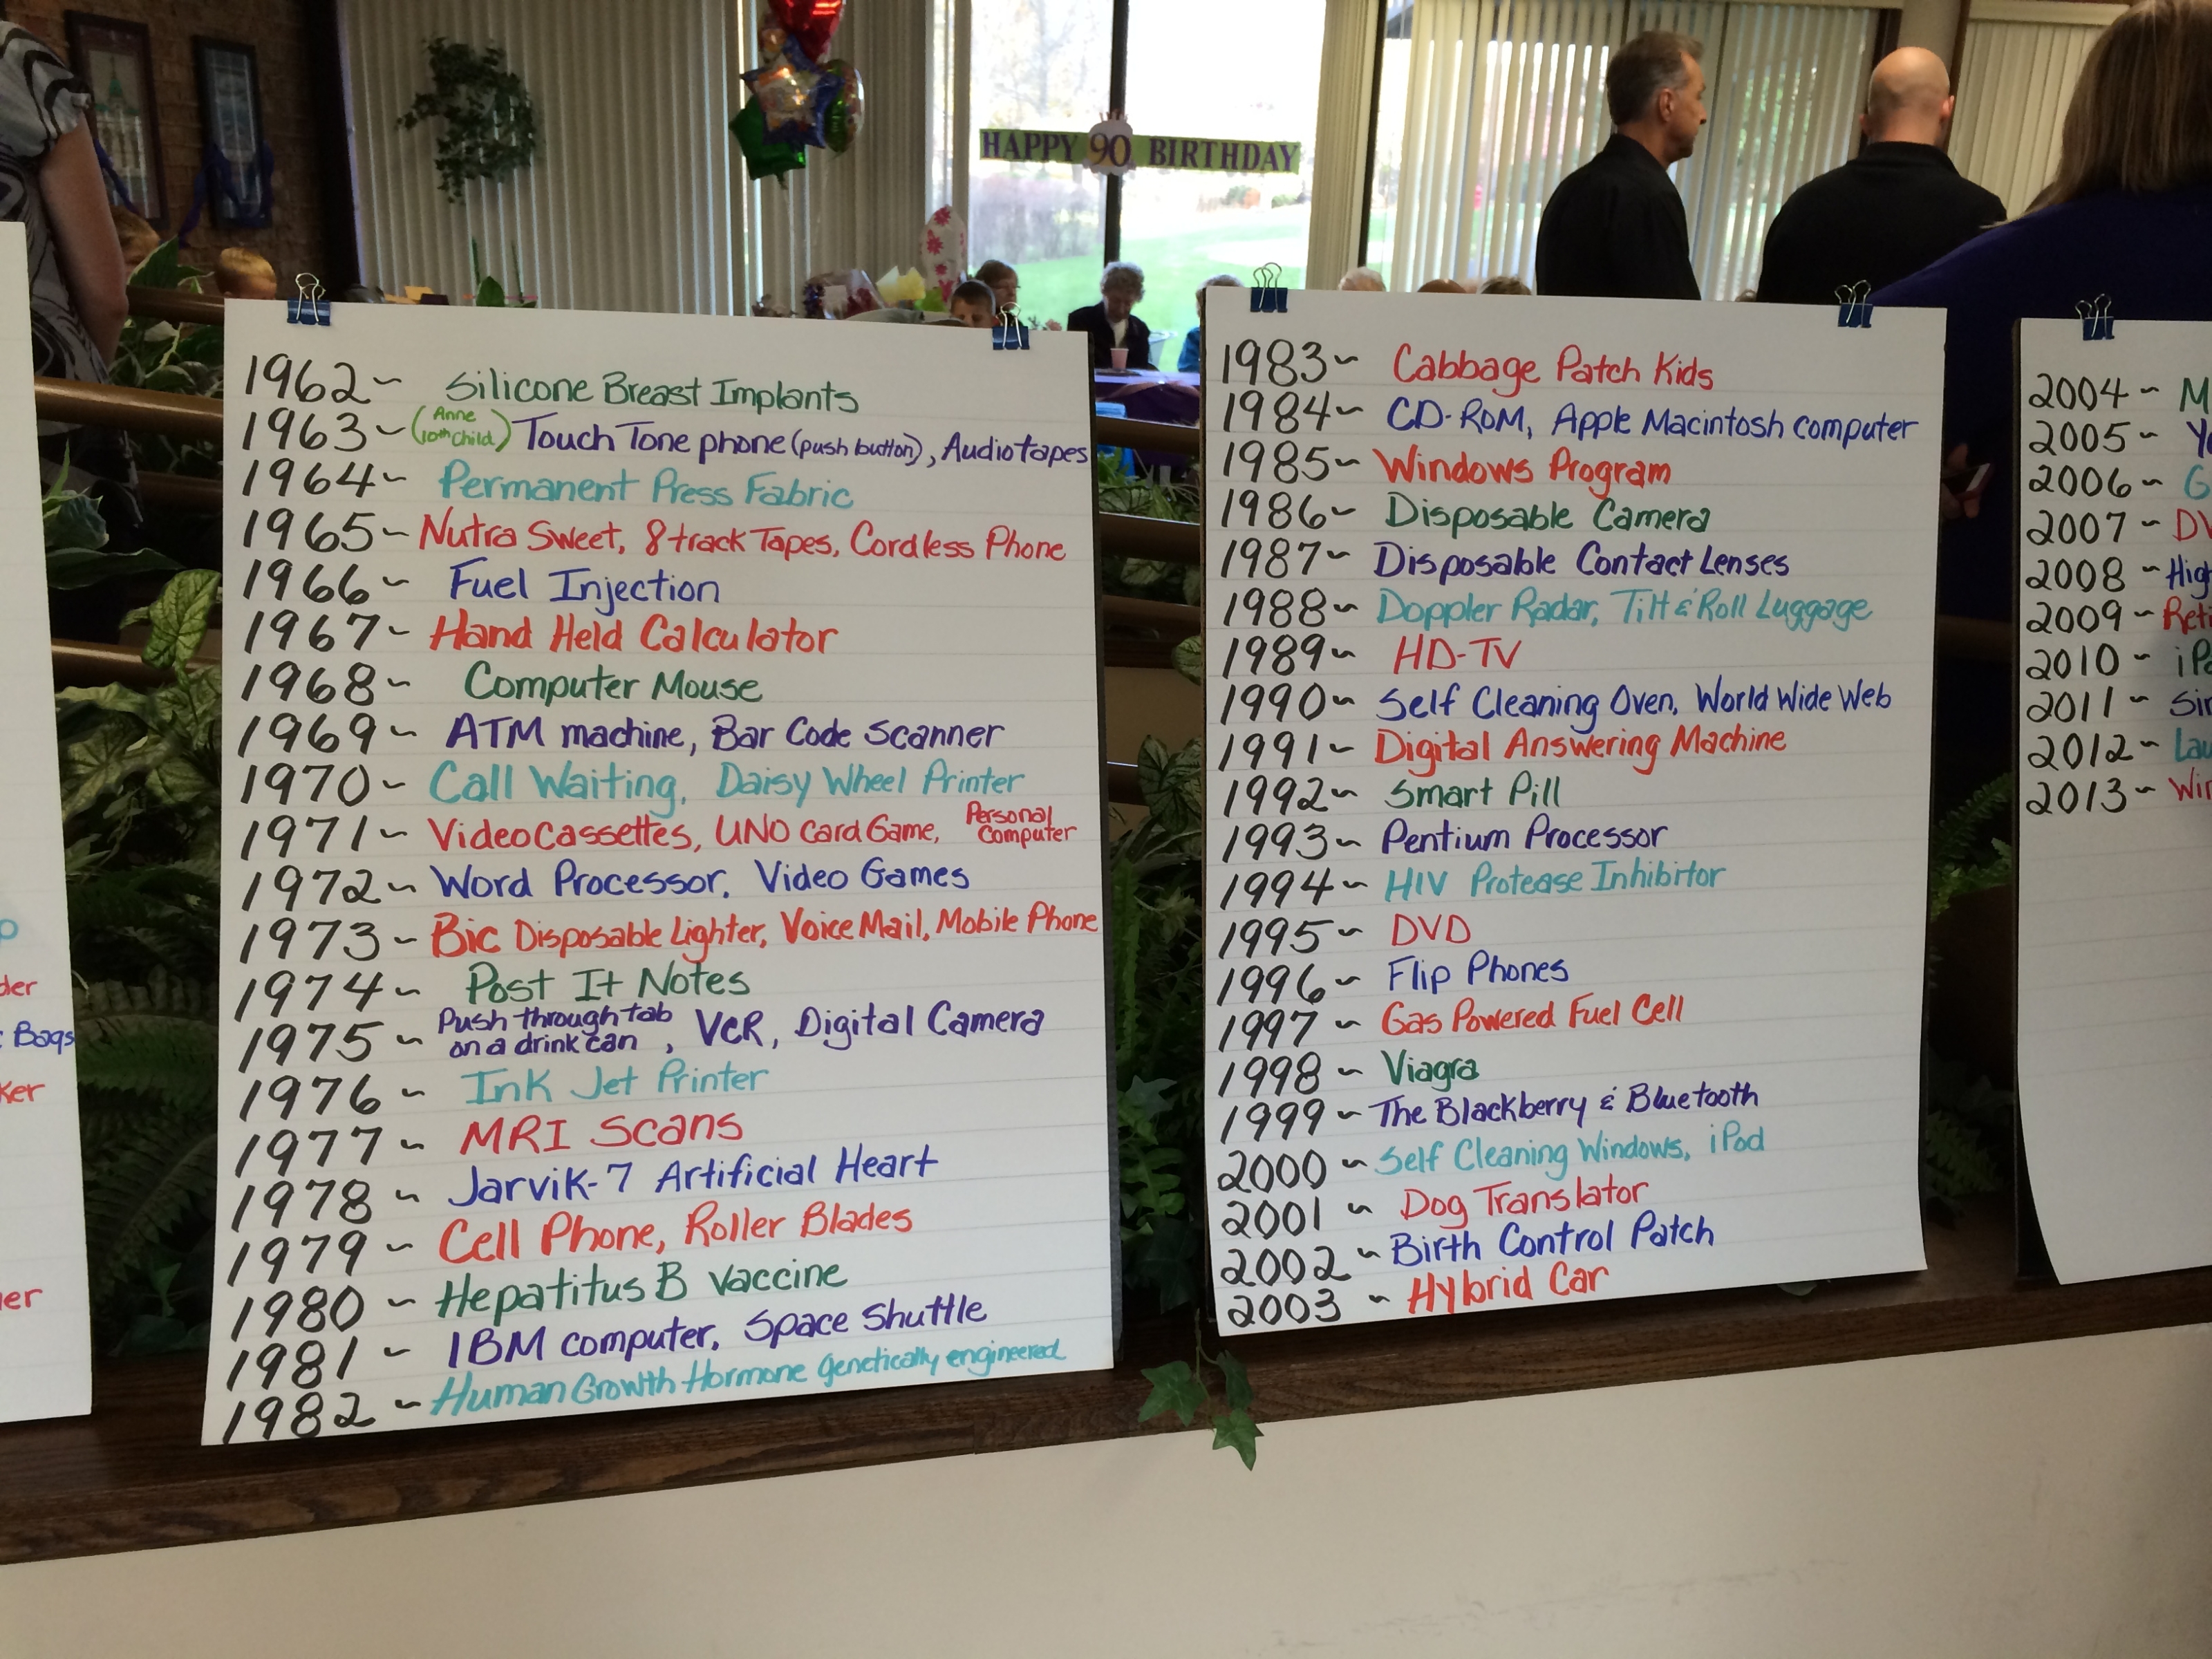 HAPPY 90 BIRTHDAY
Bags
1962~ Silicone Breast Implants
1963~ (Anne 10th child) Touch Tone phone (push button), Audiotapes
1964~ Permanent Press Fabric
1965~ Nutra Sweet, 8 track Tapes, Cordless Phone
1966~ Fuel Injection
1967~ Hand Held Calculator
1968~ Computer Mouse
1969~ ATM machine, Bar Code Scanner
1970~ Call Waiting, Daisy Wheel Printer
1971~ Video Cassettes, UNO Card Game, Personal Computer
1972~ Word Processor, Video Games
1973~ Bic Disposable Lighter, Voice Mail, Mobile Phone
1974~ Post It Notes
1975~ Push through tab on a drink can, VCR, Digital Camera
1976~ Ink Jet Printer
1977~ MRI Scans
1978~ Jarvik-7 Artificial Heart
1979~ Cell Phone, Roller Blades
1980~ Hepatitus B Vaccine
1981~ IBM computer, Space Shuttle
1982~ Human Growth Hormone genetically engineered
1983~ Cabbage Patch Kids
1984~ CD-ROM, Apple Macintosh computer
1985~ Windows Program
1986~ Disposable Camera
1987~ Disposable Contact Lenses
1988~ Doppler Radar, Tilt & Roll Luggage
1989~ HD-TV
1990~ Self Cleaning Oven, World Wide Web
1991~ Digital Answering Machine
1992~ Smart Pill
1993~ Pentium Processor
1994~ HIV Protease Inhibitor
1995~ DVD
1996~ Flip Phones
1997~ Gas Powered Fuel Cell
1998~ Viagra
1999~ The Blackberry & Bluetooth
2000~ Self Cleaning Windows, iPod
2001~ Dog Translator
2002~ Birth Control Patch
2003~ Hybrid Car
2004~
2005~
2006~
2007~
2008~
2009~
2010~
2011~
2012~
2013~